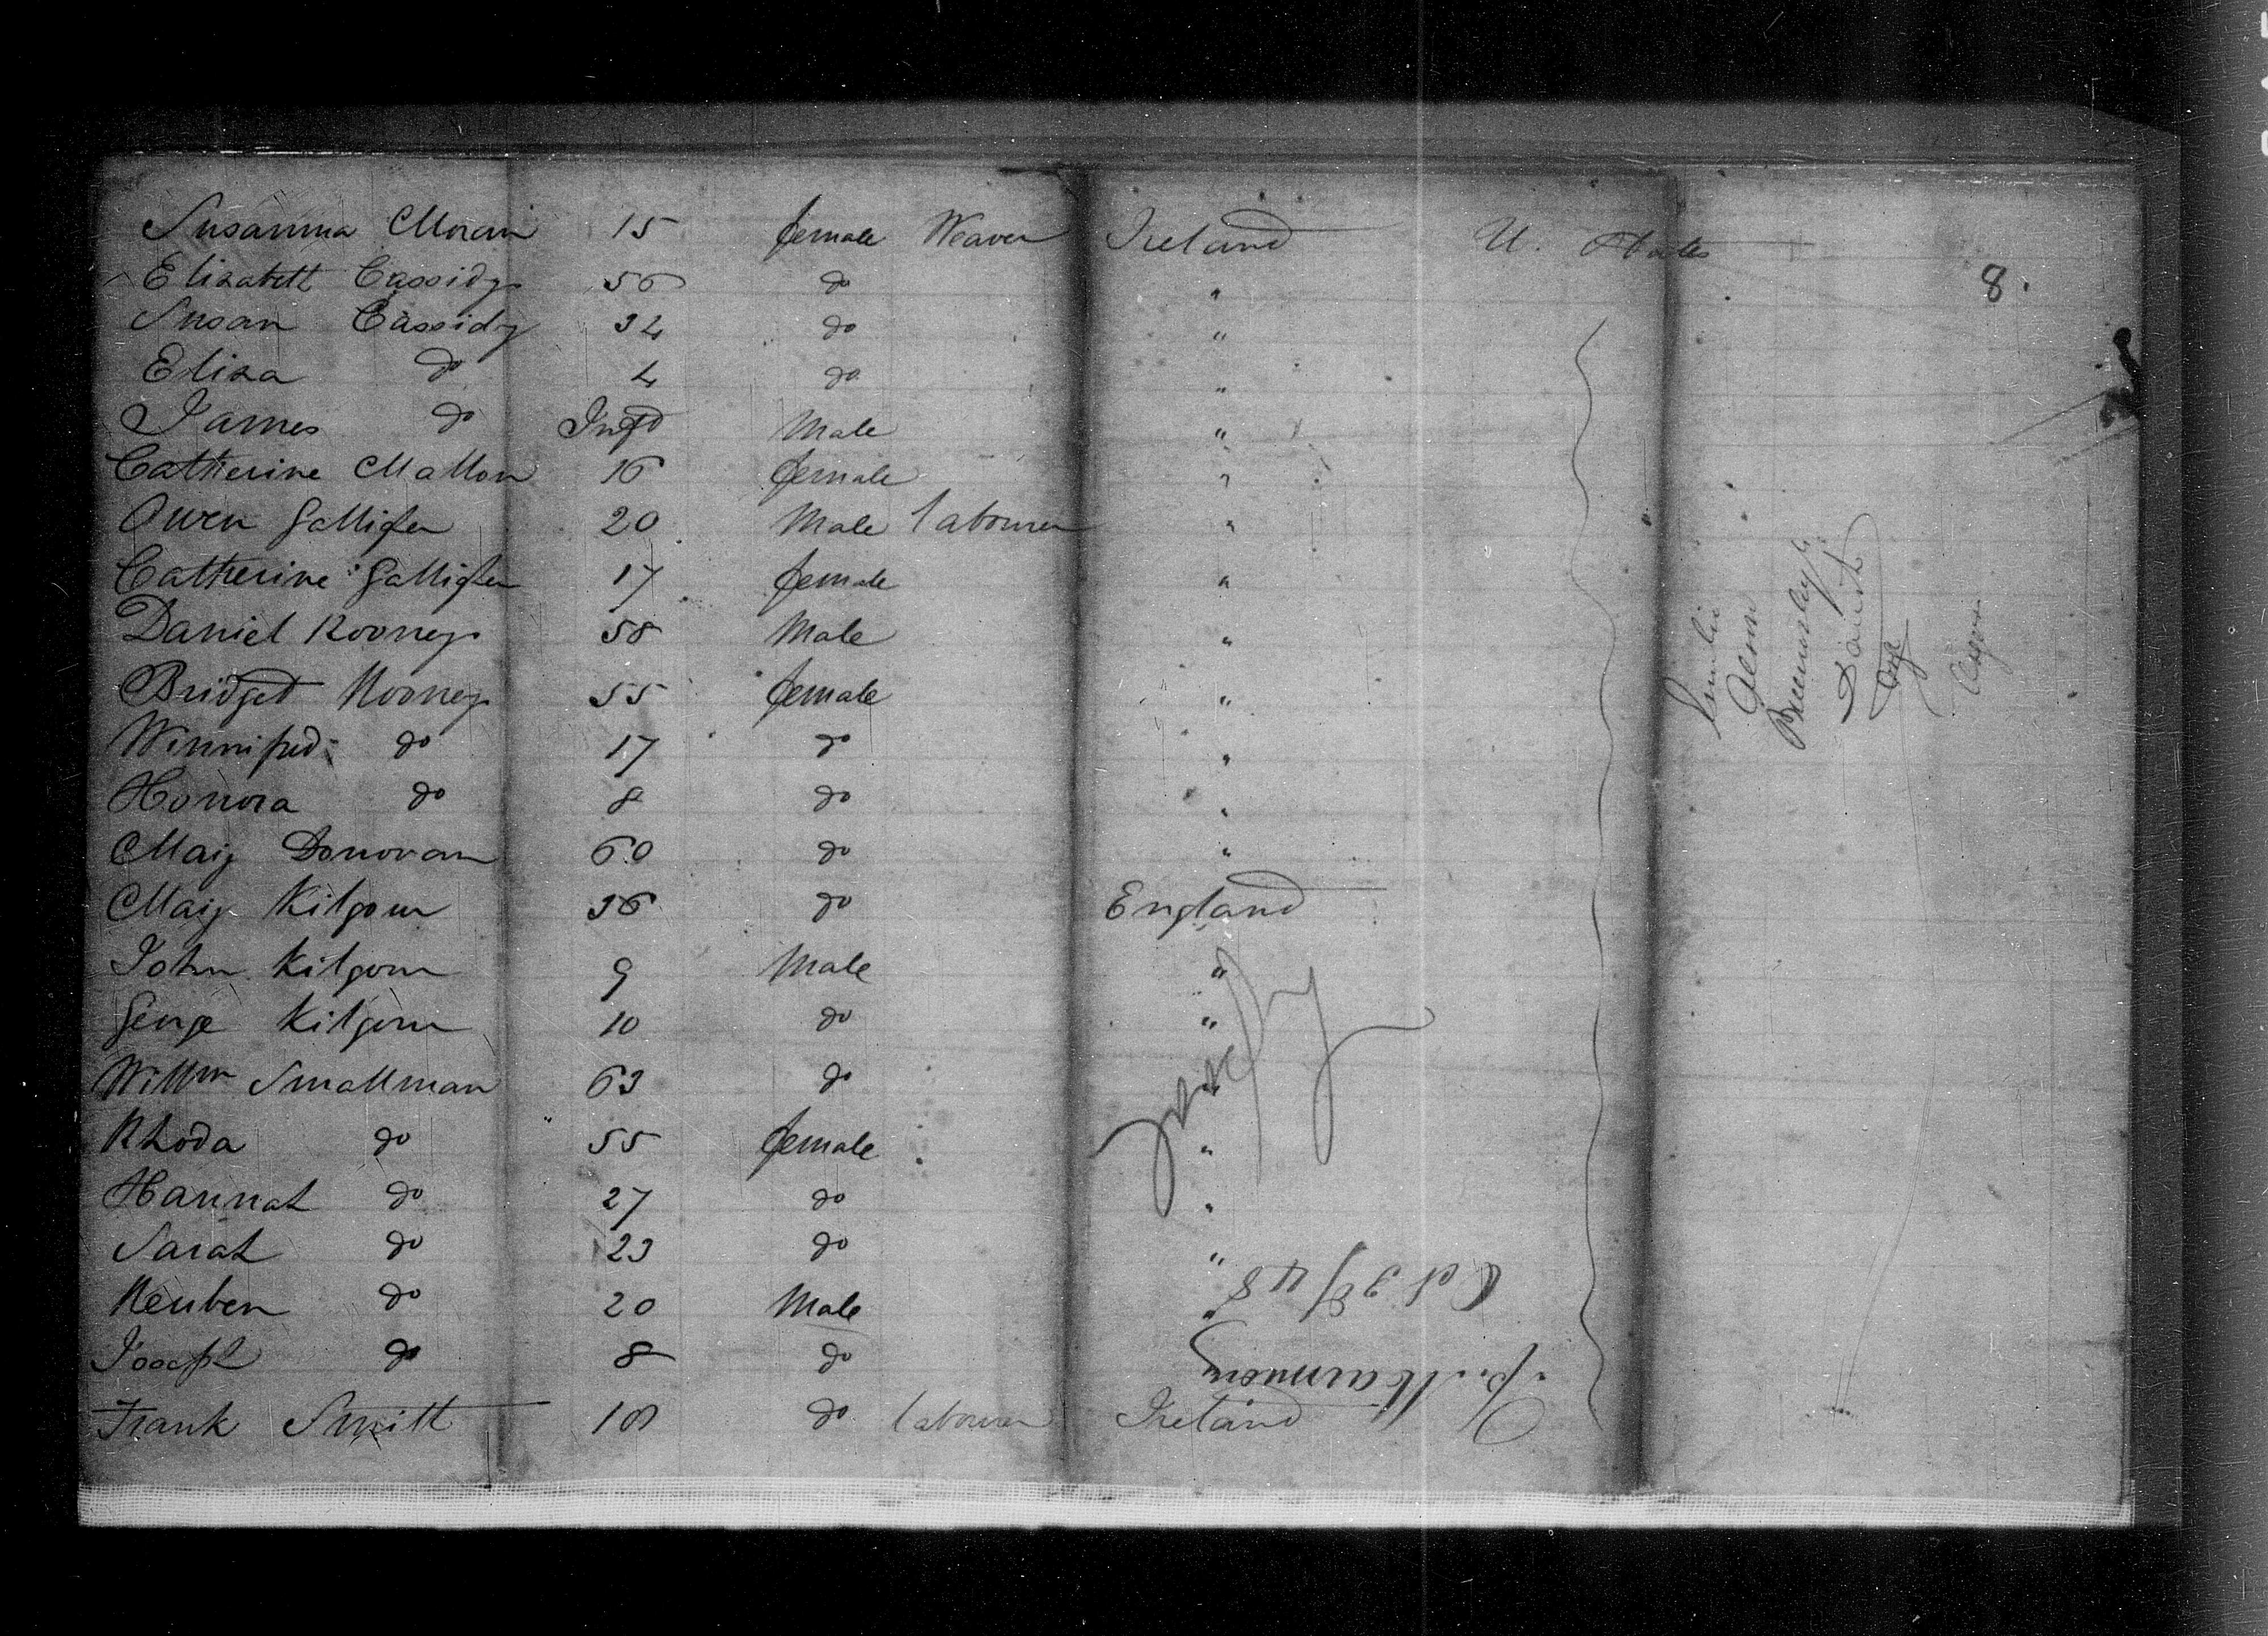 Susanna Moran 15 female Weaver Ireland U. States
8.
Elizabeth Cassidy 56 do "
Susan Cassidy 32 do "
Eliza do 4 do "
James do Inft Male "
Catherine Mallon 16 female "
Owen Galligher 20 Male labourer "
Catherine Galligher 17 female "
Daniel Rooney 58 Male "
Bridget Rooney 55 female "
Winnifred do 17 do "
Honora do 8 do "
Mary Donovan 60 do "
Mary Kilgour 36 do England
John Kilgour 9 Male "
George Kilgour 10 do "
Willm Smallman 63 do "
Rhoda do 55 female "
Hannah do 27 do "
Sarah do 23 do "
Reuben do 20 Male "
Joseph do 8 do "
Frank Smith 18 do labourer Ireland